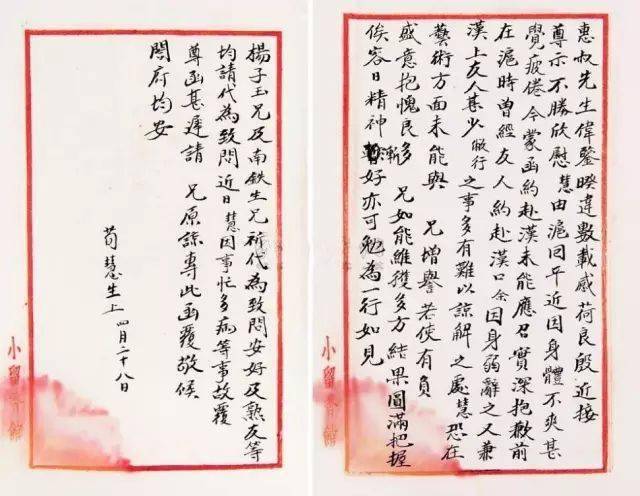 惠叔先生偉鑒暌違數載感荷良殷近接
尊示不勝欣慰慧由滬回平近因身體不爽甚
覺疲倦今蒙函約赴漢未能應召實深抱歉前
在滬時曾經友人約赴漢口余因身弱辭之又兼
漢上友人甚少做行之事多有難以諒解之處慧恐在
藝術方面未能與兄增譽若使有負
盛意抱愧良多兄如能維護多方結果圓滿把握
俟容日精神漸好亦可勉為一行如見
楊子玉兄及南鉄生兄祈代為致問安好及熟友等
均請代為致問近日慧因事忙多病等事故覆
尊函甚遲請兄原諒專此函覆敬候
閤府均安
荀慧生上四月二十八日
小留香館
小留香館